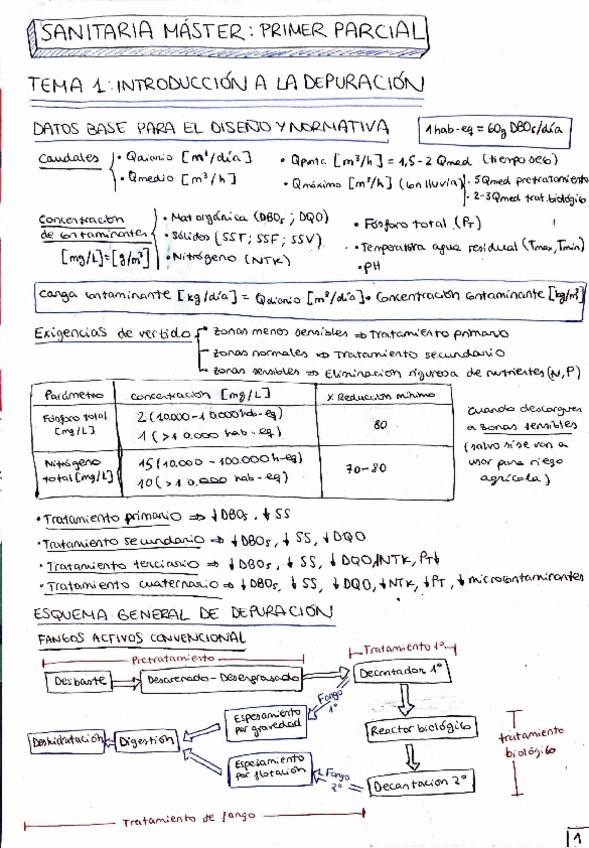 SANITARIA MÁSTER: PRIMER PARCIAL
TEMA 1: INTRODUCCIÓN A LA DEPURACIÓN
DATOS BASE PARA EL DISEÑO Y NORMATIVA
1 hab-eq = 60g DBO₅/día
Caudales
• Qdiario [m³/día]
• Qpunta [m³/h] = 1,5-2 Qmed (tiempo seco)
• Qmedio [m³/h]
• Qmáximo [m³/h] (con lluvia)
• 5Qmed pretratamiento
• 2-3Qmed trat. biológico
Concentración de contaminantes
[mg/L]=[g/m³]
• Mat orgánica (DBO₅; DQO)
• Sólidos (SST; SSF; SSV)
• Nitrógeno (NTK)
• Fósforo total (PT)
• Temperatura agua residual (Tmax, Tmin)
• PH
Carga contaminante [kg/día] = Qdiario [m³/día] • Concentración contaminante [kg/m³]
Exigencias de vertido
zonas menos sensibles ⇒ Tratamiento primario
zonas normales ⇒ Tratamiento secundario
zonas sensibles ⇒ Eliminación rigurosa de nutrientes (N, P)
Parámetro | Concentración [mg/L] | % Reducción mínimo
Fósforo total [mg/L] | 2 (10.000-10.000 hab-eq) | 80
1 (>10.000 hab-eq)
Nitrógeno total [mg/L] | 15 (10.000 - 100.000 h-eq) | 70-80
10 (>10.000 hab-eq)
Cuando descargues
a zonas sensibles
(salvo si se van a
usar para riego
agrícola)
• Tratamiento primario ⇒ ↓DBO₅, ↓SS
• Tratamiento secundario ⇒ ↓DBO₅, ↓SS, ↓DQO
• Tratamiento terciario ⇒ ↓DBO₅, ↓SS, ↓DQO, ↓NTK, PT↓
• Tratamiento cuaternario ⇒ ↓DBO₅, ↓SS, ↓DQO, ↓NTK, ↓PT, ↓microcontaminantes
ESQUEMA GENERAL DE DEPURACIÓN
FANGOS ACTIVOS CONVENCIONAL
Pretratamiento
Tratamiento 1º
Desbaste
Desarenado-Desengrasado
Decantador 1º
Fango 1º
Espesamiento por gravedad
Reactor biológico
tratamiento biológico
Deshidratación
Digestión
Espesamiento por flotación
Fango 2º
Decantación 2º
Tratamiento de fango
1